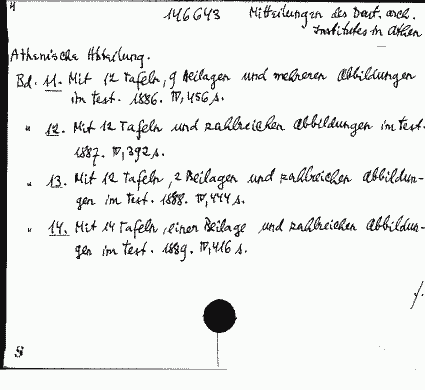 4
146643 Mitteilungen des Deut. arch.
Institutes in Athen
Athenische Abteilung.
Bd. 11. Mit 12 Tafeln, 9 Beilagen und mehreren Abbildungen
im Test. 1886. IV, 456 S.
" 12. Mit 12 Tafeln und zahlreichen Abbildungen im Test.
1887. IV, 392 S.
" 13. Mit 12 Tafeln, 2 Beilagen und zahlreichen Abbildun-
gen im Test. 1888. IV, 444 S.
" 14. Mit 14 Tafeln, einer Beilage und zahlreichen Abbildun-
gen im Test. 1889. IV, 416 S.
./.
S